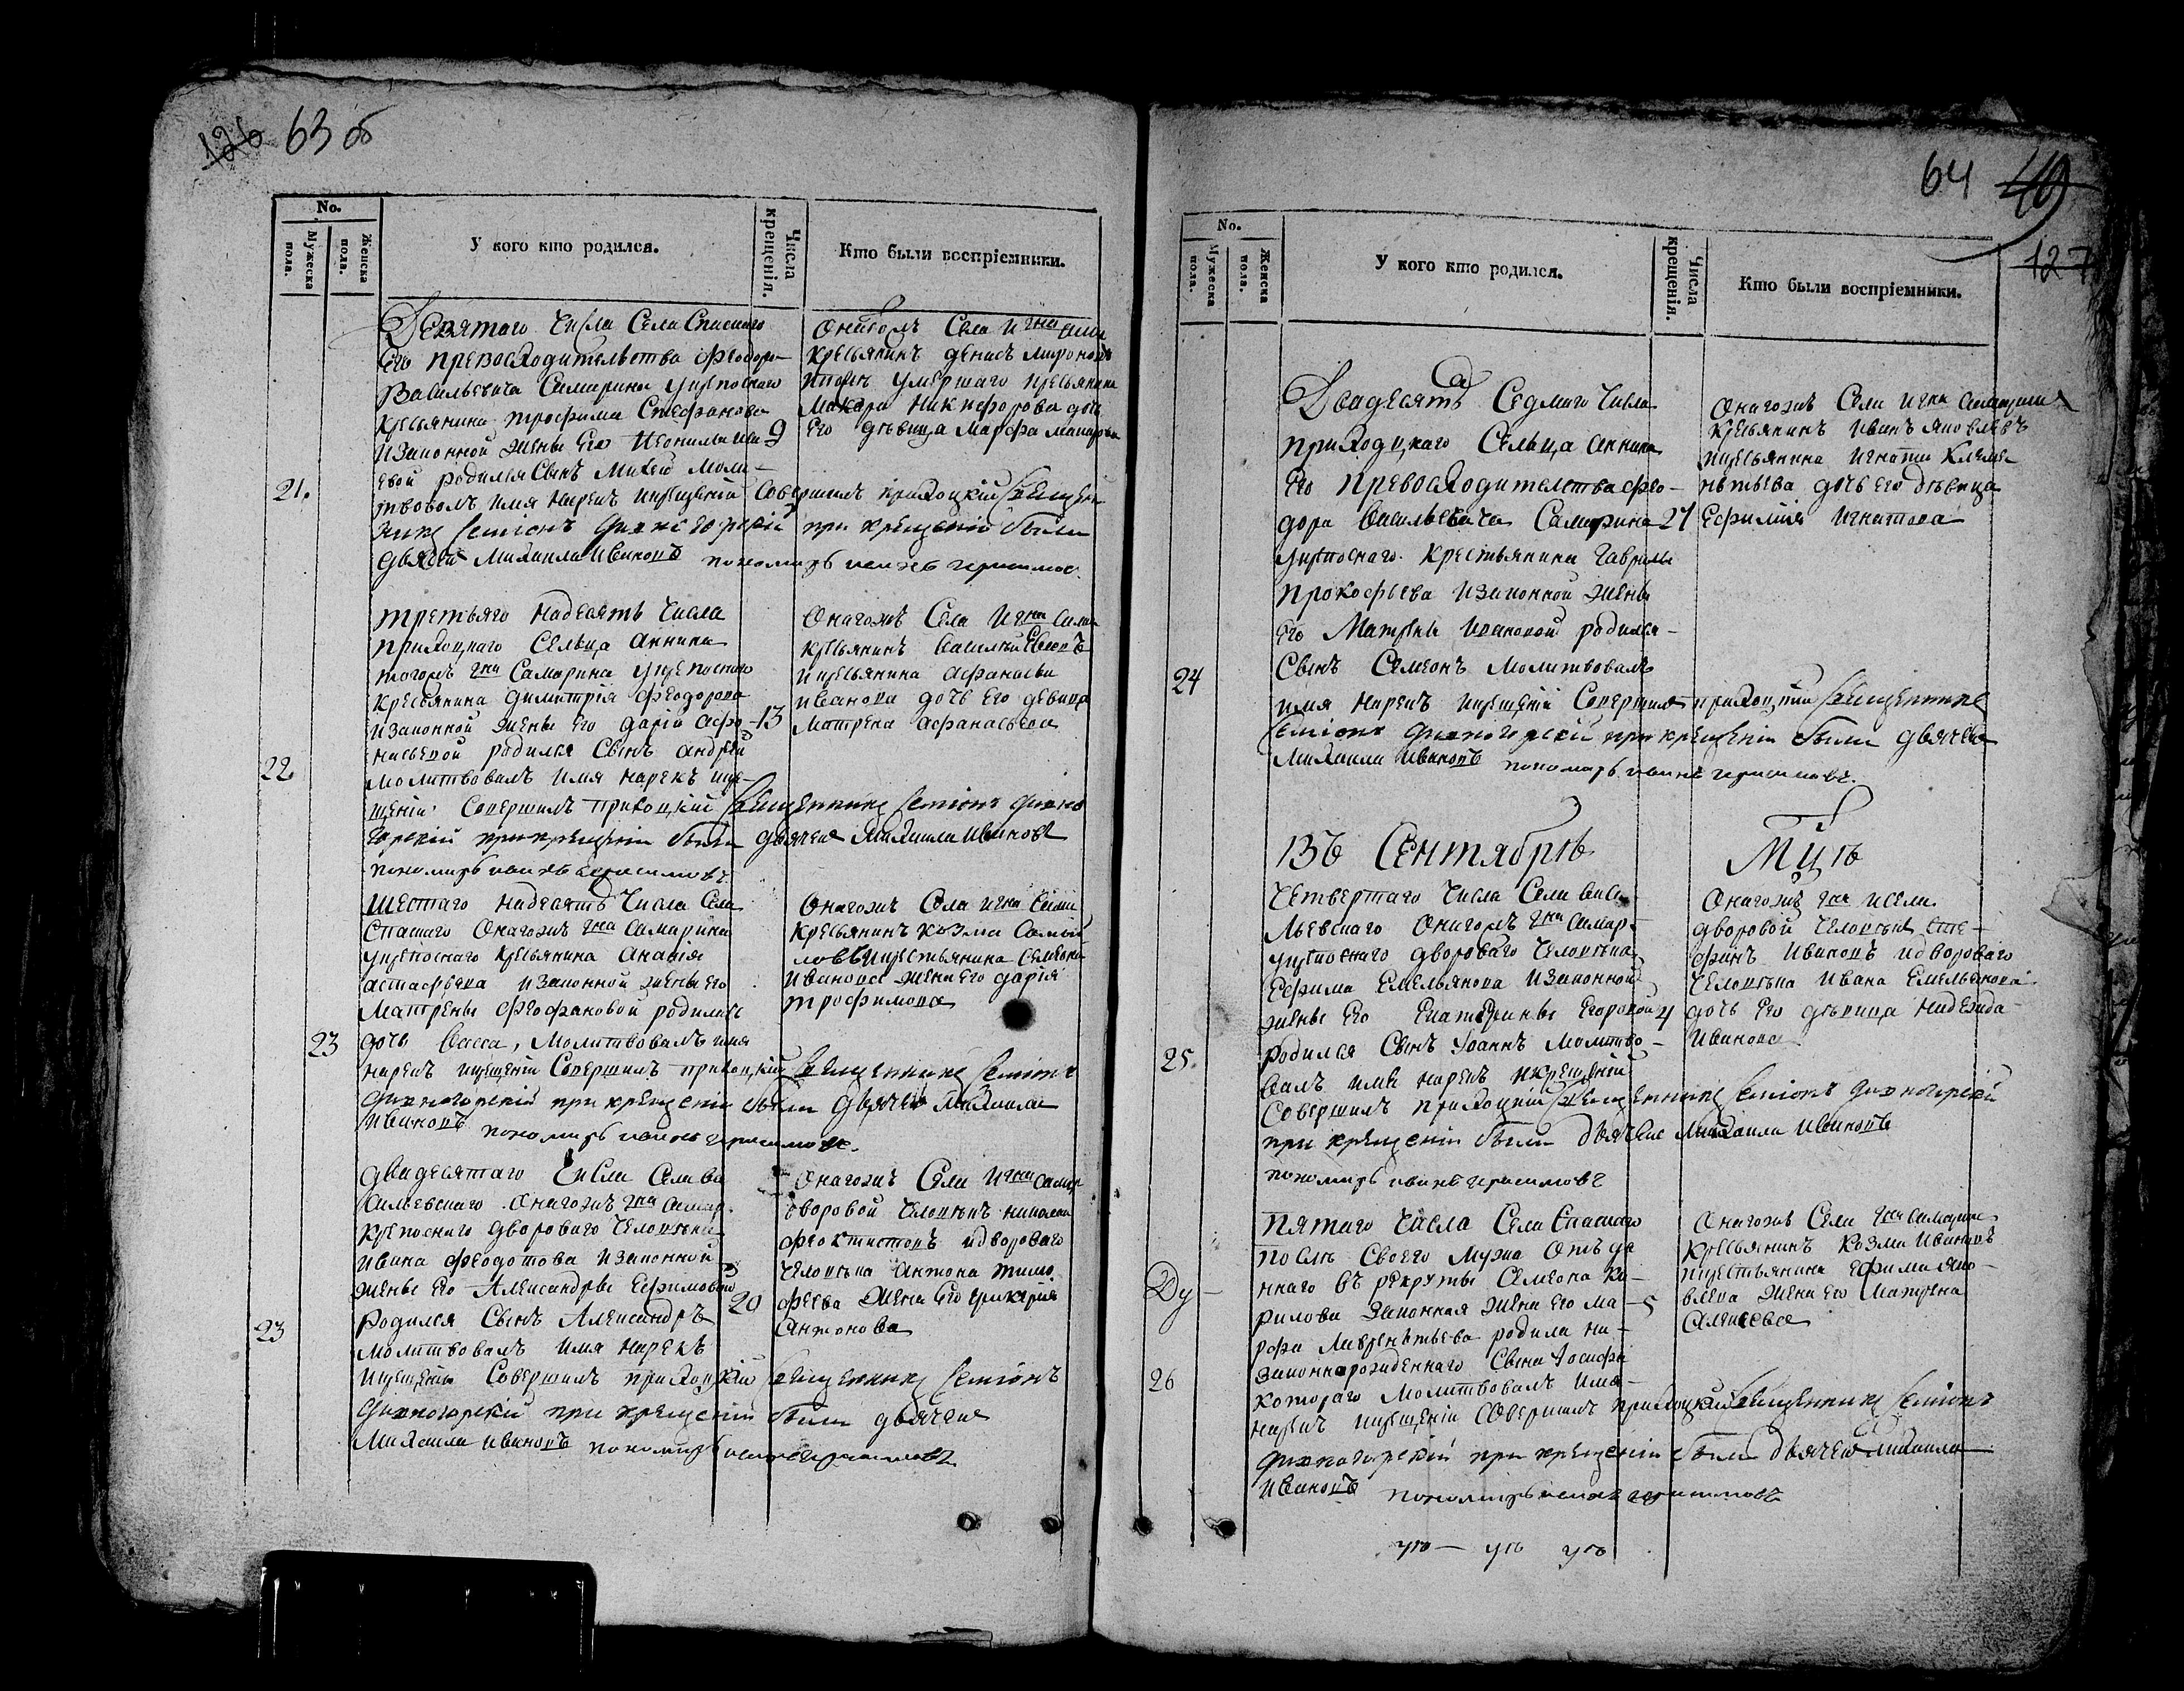 126 63 об
No.
Мужеска пола.
Женска пола.
У кого кто родился.
Числа крещенія.
Кто были воспріемники.
Девятаго Числа Села Спаскаго
Его превосходительства Феодора
Васильевича Самарина укрепоснаго
крестьянина трофима Стефанова
изаконной жены Его
евой родился Сынъ Михей моли-
21.
твовалъ имя нарекъ икрещеній Совершилъ приходцкій Священ
никъ Семіонъ Дивногорскій при крещеніи были
дьячекъ Михаила Ивановъ пономарь иванъ герасимов
9
Онагожъ Села игна
Крестьянинъ денисъ мироновъ
умершаго крестьянина
Макара Никифорова дочь
Его девица Марфа макарова
третьяго надесять Числа
приходцкаго Сельца аннина
тогожъ гна Самарина укрепоснаго
крестьянина димитрія Феодорова
изаконной жены Его дарій афо-
насьевой родился Сынъ андрей
22.
молитвовалъ имя нарекъ икре-
щеніи Совершилъ приходцкій Священникъ Семіонъ дивно
горскій прикрещеніи были дьячекъ Михаила Ивановъ
пономарь иванъ герасимовъ
13
Онагожъ Села игна Сама
крестьянинъ Василий
икрестьянина афанасья
иванова дочь его девица
Матрена афанасьева
шестаго надесять Числа Села
Спаскаго Онагожъ гна Самарина
укрепоснаго крестьянина Анания
астафьева изаконной жены его
Матрены Феофановой родилась
23
дочь Васса, молитвовалъ имя
нарекъ икрещеніи Совершилъ приходцкій Священникъ Семіонъ
дивногорскій при крещеніи были дьячекъ Михаила
Ивановъ пономарь иванъ герасимовъ.
Онагожъ Села игна Сама
крестьянинъ козма Самой
ловъ икрестьянина Семена
Иванова жена его дарія
трофимова
двадесятаго Числа Села Ва
сильевскаго Онагожъ гна Самар.
крепоснаго двороваго Человека
ивана Феодотова изаконной
жены его Александры Ефимовой
родился Сынъ Александръ
23
молитвовалъ имя нарекъ
икрещеніи Совершилъ приходцкій Священникъ Семіонъ
дивногорскій при крещеніи были дьячекъ
Михаила ивановъ пономарь иванъ герасимовъ
20
Онагожъ Села игна Самар
дворовой Человекъ николай
феоктистовъ идвороваго
Человека Антона тимо
феева жена Его гликерія
Антонова
64 49
127
No.
Мужеска пола.
Женска пола.
У кого кто родился.
Числа крещенія.
Кто были воспріемники.
Двадесять Седмаго Числа
приходцкаго Сельца аннина
Его превосходителства Фео-
дора Васильевича Самарина
укрепоснаго крестьянина Гаврилы
прокофьева изаконной жены
его Матрены Ивановой родился
24
Сынъ Самсонъ молитвовалъ
имя нарекъ икрещеніи Совершилъ приходцкій Священникъ
Семіонъ дивногорскій при крещеніи были дьячекъ
Михаила Ивановъ пономарь иванъ герасимовъ.
27
Онагожъ Села игна Самарина
крестьянинъ иванъ яковлевъ
икрестьянина игнатия Клеме
нтьева дочь его девица
Ефимія игнатова
Въ Сентябрѣ Мцѣ
Четвертаго Числа Села Васи
льевскаго Онагожъ гна Самар-
укрепоснаго двороваго Человека
Ефима Емельянова изаконной
жены Его Екатерины Егоровой
25.
родился Сынъ Иоаннъ молитво-
валъ имя нарекъ икрещеній
Совершилъ приходцкій Священникъ Семіонъ дивногорскій
при крещеніи были дьячекъ Михаила Ивановъ
пономарь иванъ герасимовъ
4
Онагожъ гна иСела
дворовой Человекъ Сте-
фанъ Ивановъ идвороваго
Человека Ивана Емельянова
дочь Его девица Надежда
Иванова
пятаго Числа Села Спаскаго
после Своего мужа Отъда
ннаго въ рекруты Семена Ка-
рилова Законная жена его Ма-
рфа Лаврентьева родила не-
законнорожденнаго Сына Иосифа
26
котораго молитвовалъ имя
нарекъ икрещеніи Совершилъ приходцкій Священникъ Семіонъ
дивногорскій при крещеніи были дьячекъ Михаила
Ивановъ пономарь иванъ герасимовъ
5
Онагожъ Села гна Самарин
крестьянинъ Козма Ивановъ
икрестьянина Ефима Яко-
влева жена Его Матрена
Алексеева